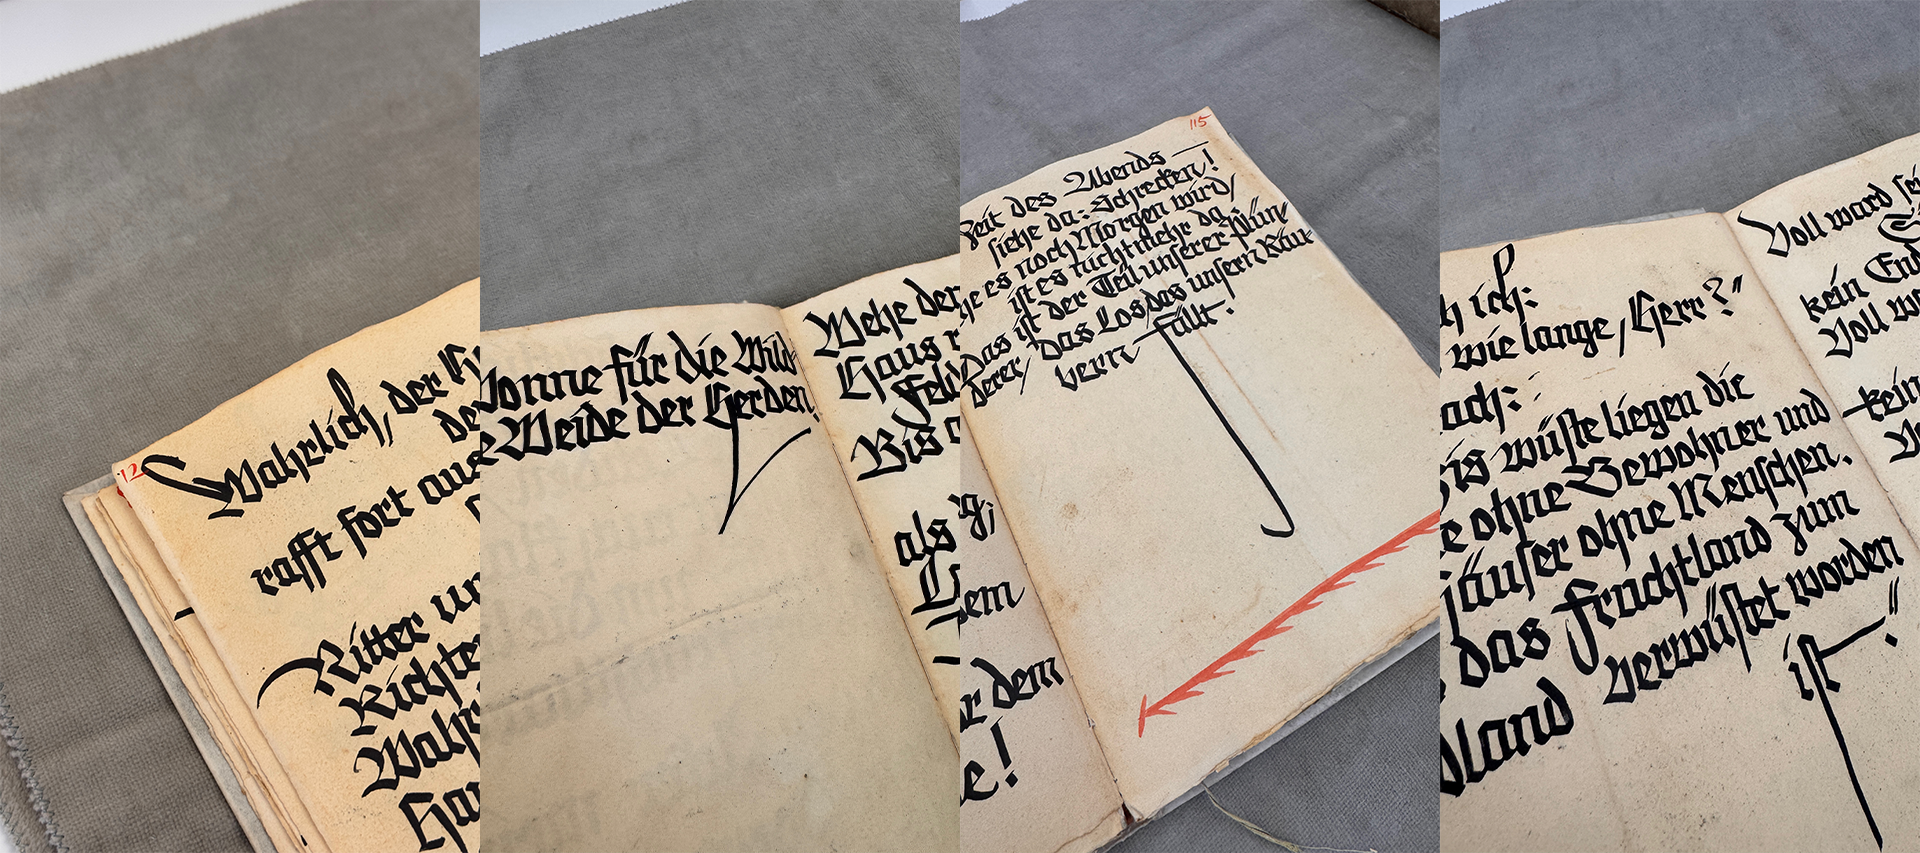 12
Wahrlich, der H
de
rafft fort aus
Ritter un
Richte
Wahrs
Hau
Wonne für die Wild-
e Weide der Herden,
Wehe den
Haus
Feld
Bis
als
115
Zeit des Abends —
siehe da: Schrecken!
he es noch Morgen wird/
ist es nicht mehr da.
Das ist der Teil unserer Plün-
derer, das Los das unsern Räu-
bern fällt.
ig;
dem
r dem
e!
h ich:
wie lange, Herr?"
ach:
is wüste liegen die
e ohne Bewohner und
Häuser ohne Menschen.
das Fruchtland zum
dland verwüstet worden
ist — !"
Voll ward sei
kein End
Voll w
kein